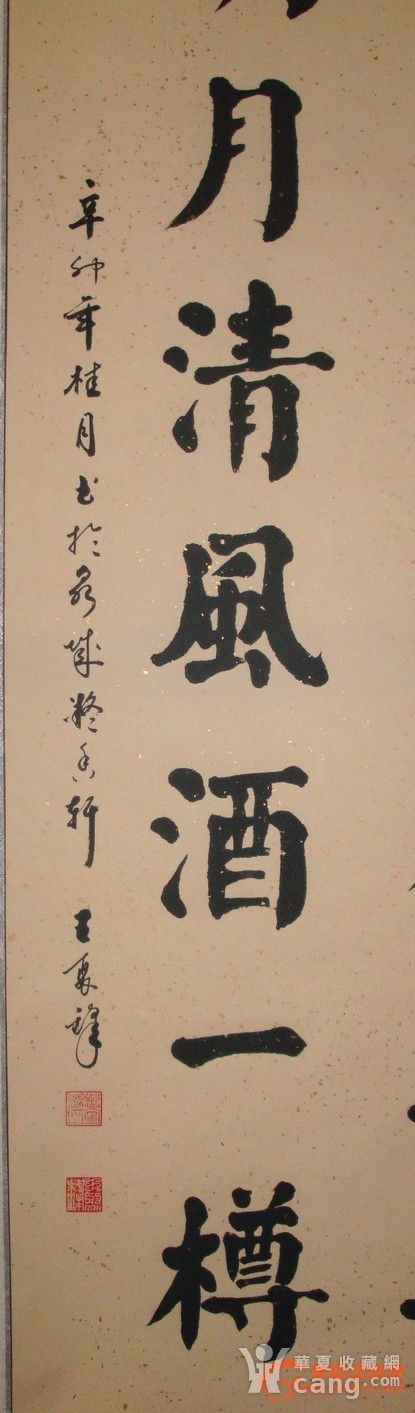 月清風酒一樽
辛卯年桂月书於泉城凝香轩 王夏锋
華夏收藏網
cang.com